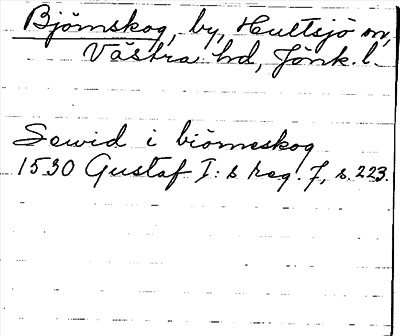 Björnskog, by, Hultsjö sn,
Västra hd, Jönk. l.
Sewid i biörneskog
1530 Gustaf I:s reg. 7, s. 223.